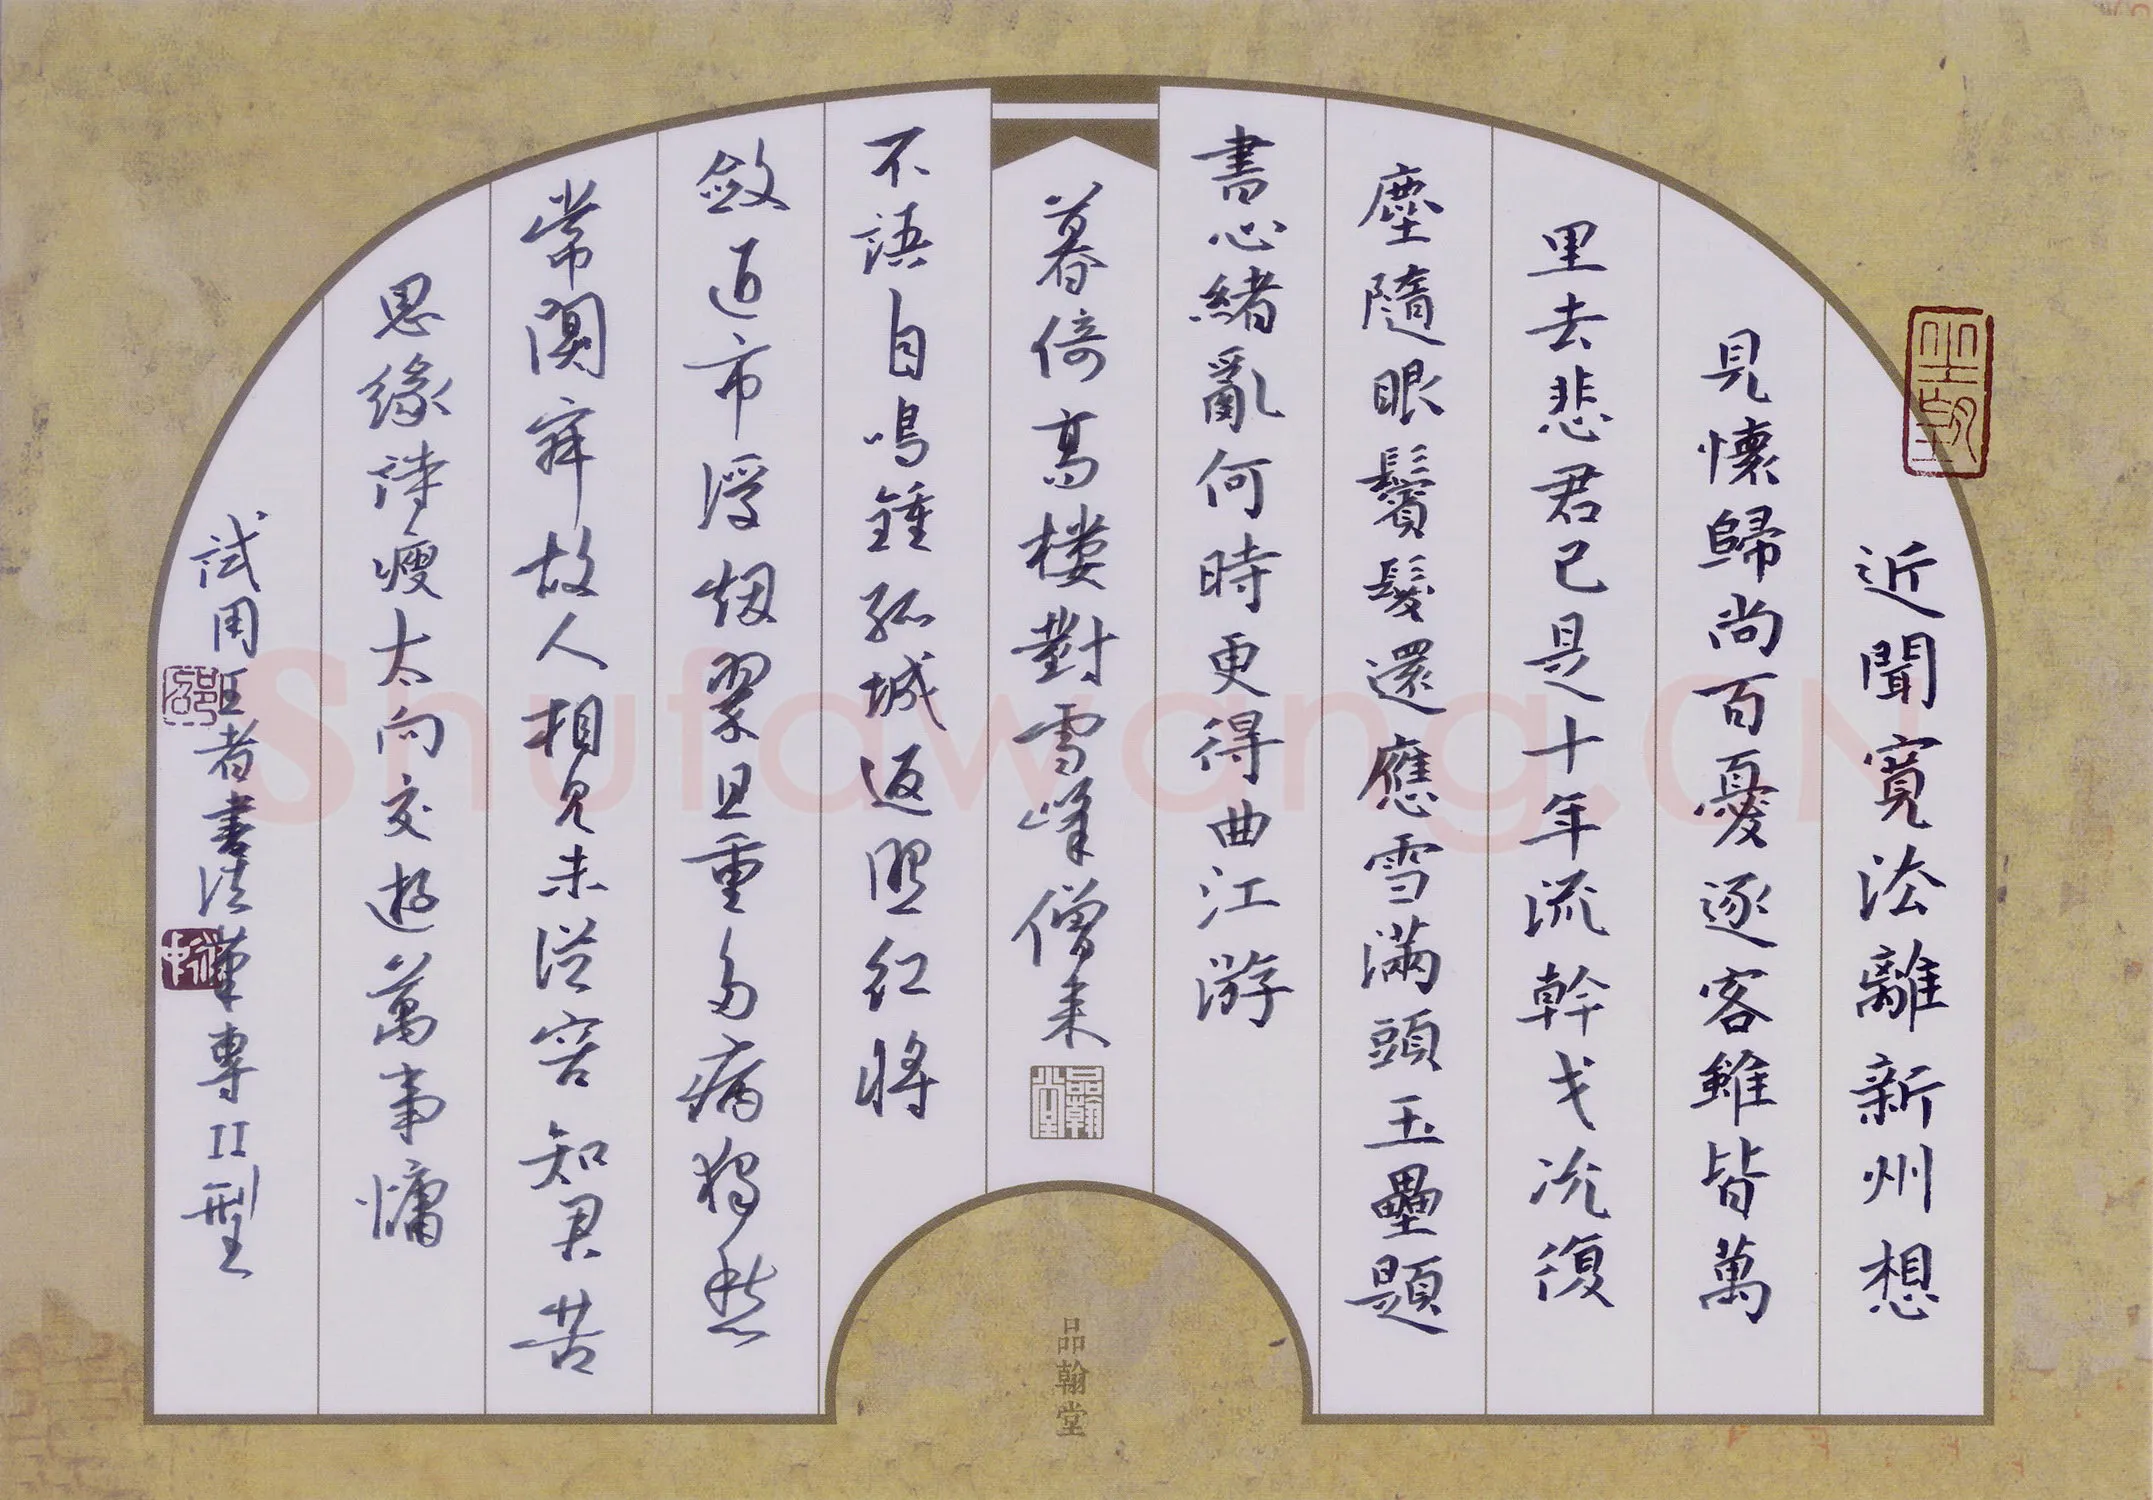 近聞寬法離新州想
見懷歸尚百憂逐客雖皆萬
里去悲君已是十年流幹戈況復
塵隨眼鬢髮還應雪滿頭玉壘題
書心緒亂何時更得曲江游
暮倚高樓對雪峰僧來
不語自鳴鍾孤城返照紅將
斂近市浮烟翠且重多病獨愁
常闃寂故人相見未從容知君苦
思緣詩瘦太向交遊萬事慵
試用王者書法筆專II型
品翰堂
品翰堂
Shufawang.CN